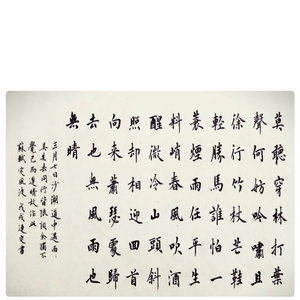 莫聽穿林打葉
聲何妨吟嘯且
徐行竹杖芒鞋
輕勝馬誰怕一
蓑煙雨任平生
料峭春風吹酒
醒微冷山頭斜
照却相迎回首
向来蕭瑟處歸
去也無風雨也
無晴
三月七日沙湖道中遇雨雨
具先去同行皆狼狽余獨不
覺已而遂晴故作此
蘇軾定風波 戊戌連定書